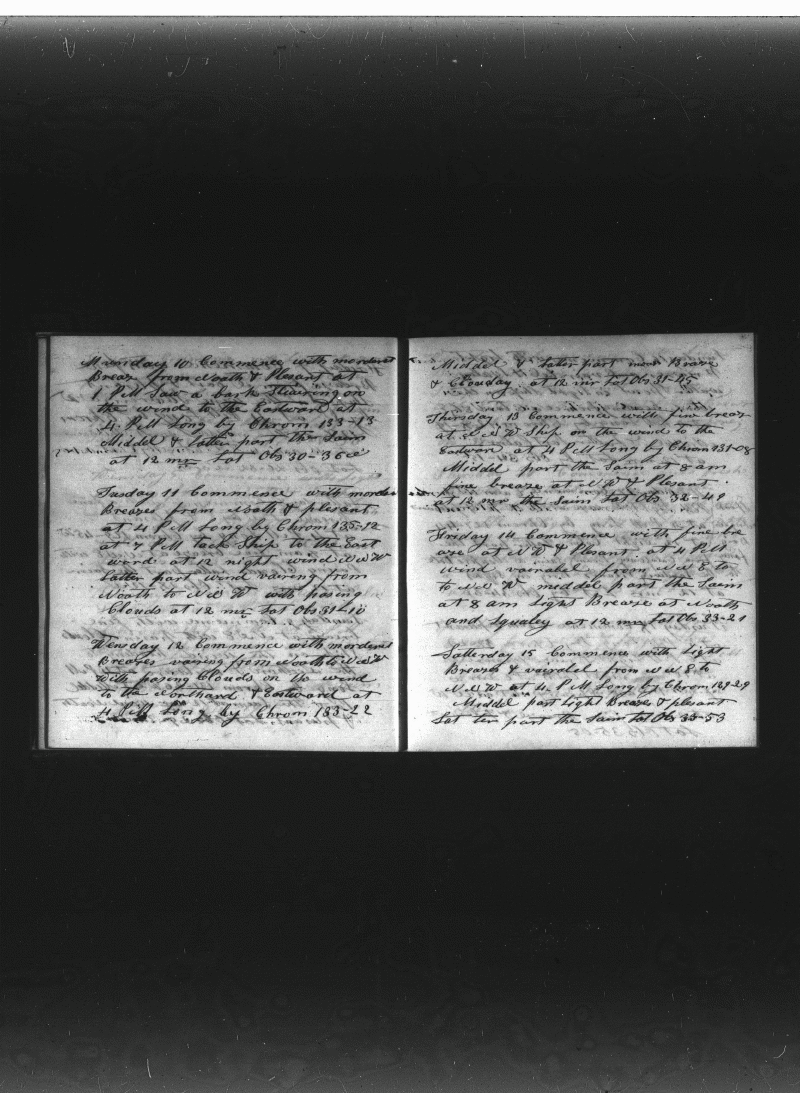 Munday 10 Commence with morderat
Breaz from North & Plesant at
1 PM Saw a bark Stearing on
the wind to the Eastward at
4 PM Long by Chrom 133-13
Middel & latter part the Saim
at 12 mr Lat Obs 30-36
Tusday 11 Commence with morder
Breazes from North & plesant
at 4 PM Long by Chrom 135-12
at 7 PM tack Ship to the East
werd at 12 night wind N N W
latter part wind varing from
North to N N W with pasing
Clouds at 12 mr Lat Obs 31-10
Wensday 12 Commence with morderat
Breazes varing from North to N N W
with pasing Clouds on the wind
to the Northard & Eastward at
4 PM Long by Chrom 133-22
Middel & later part more Breaze
& Clouday at 12 mr Lat Obs 31-45
Thursday 13 Commence with fine breaz
at N N W Ship on the wind to the
Eastward at 4 PM Long by Chrom 131-08
Middel part the Saim at 8 am
fine breaze at N W & Plesant
at 12 mr the Saim Lat Obs 32-49
Friday 14 Commence with fine bre
aze at N W & Plesant at 4 PM
wind vairabel from N N E to
to N N W middel part the Saim
at 8 am Light Breaze at North
and Squaley at 12 mr Lat Obs 33-21
Satterday 15 Commence with Light
Breazes & vairabel from N N E to
N N W at 4 PM Long by Chrom 129-29
Middel part Light Breazes & plesant
Lat ter part the Saim Lat Obs 33-53